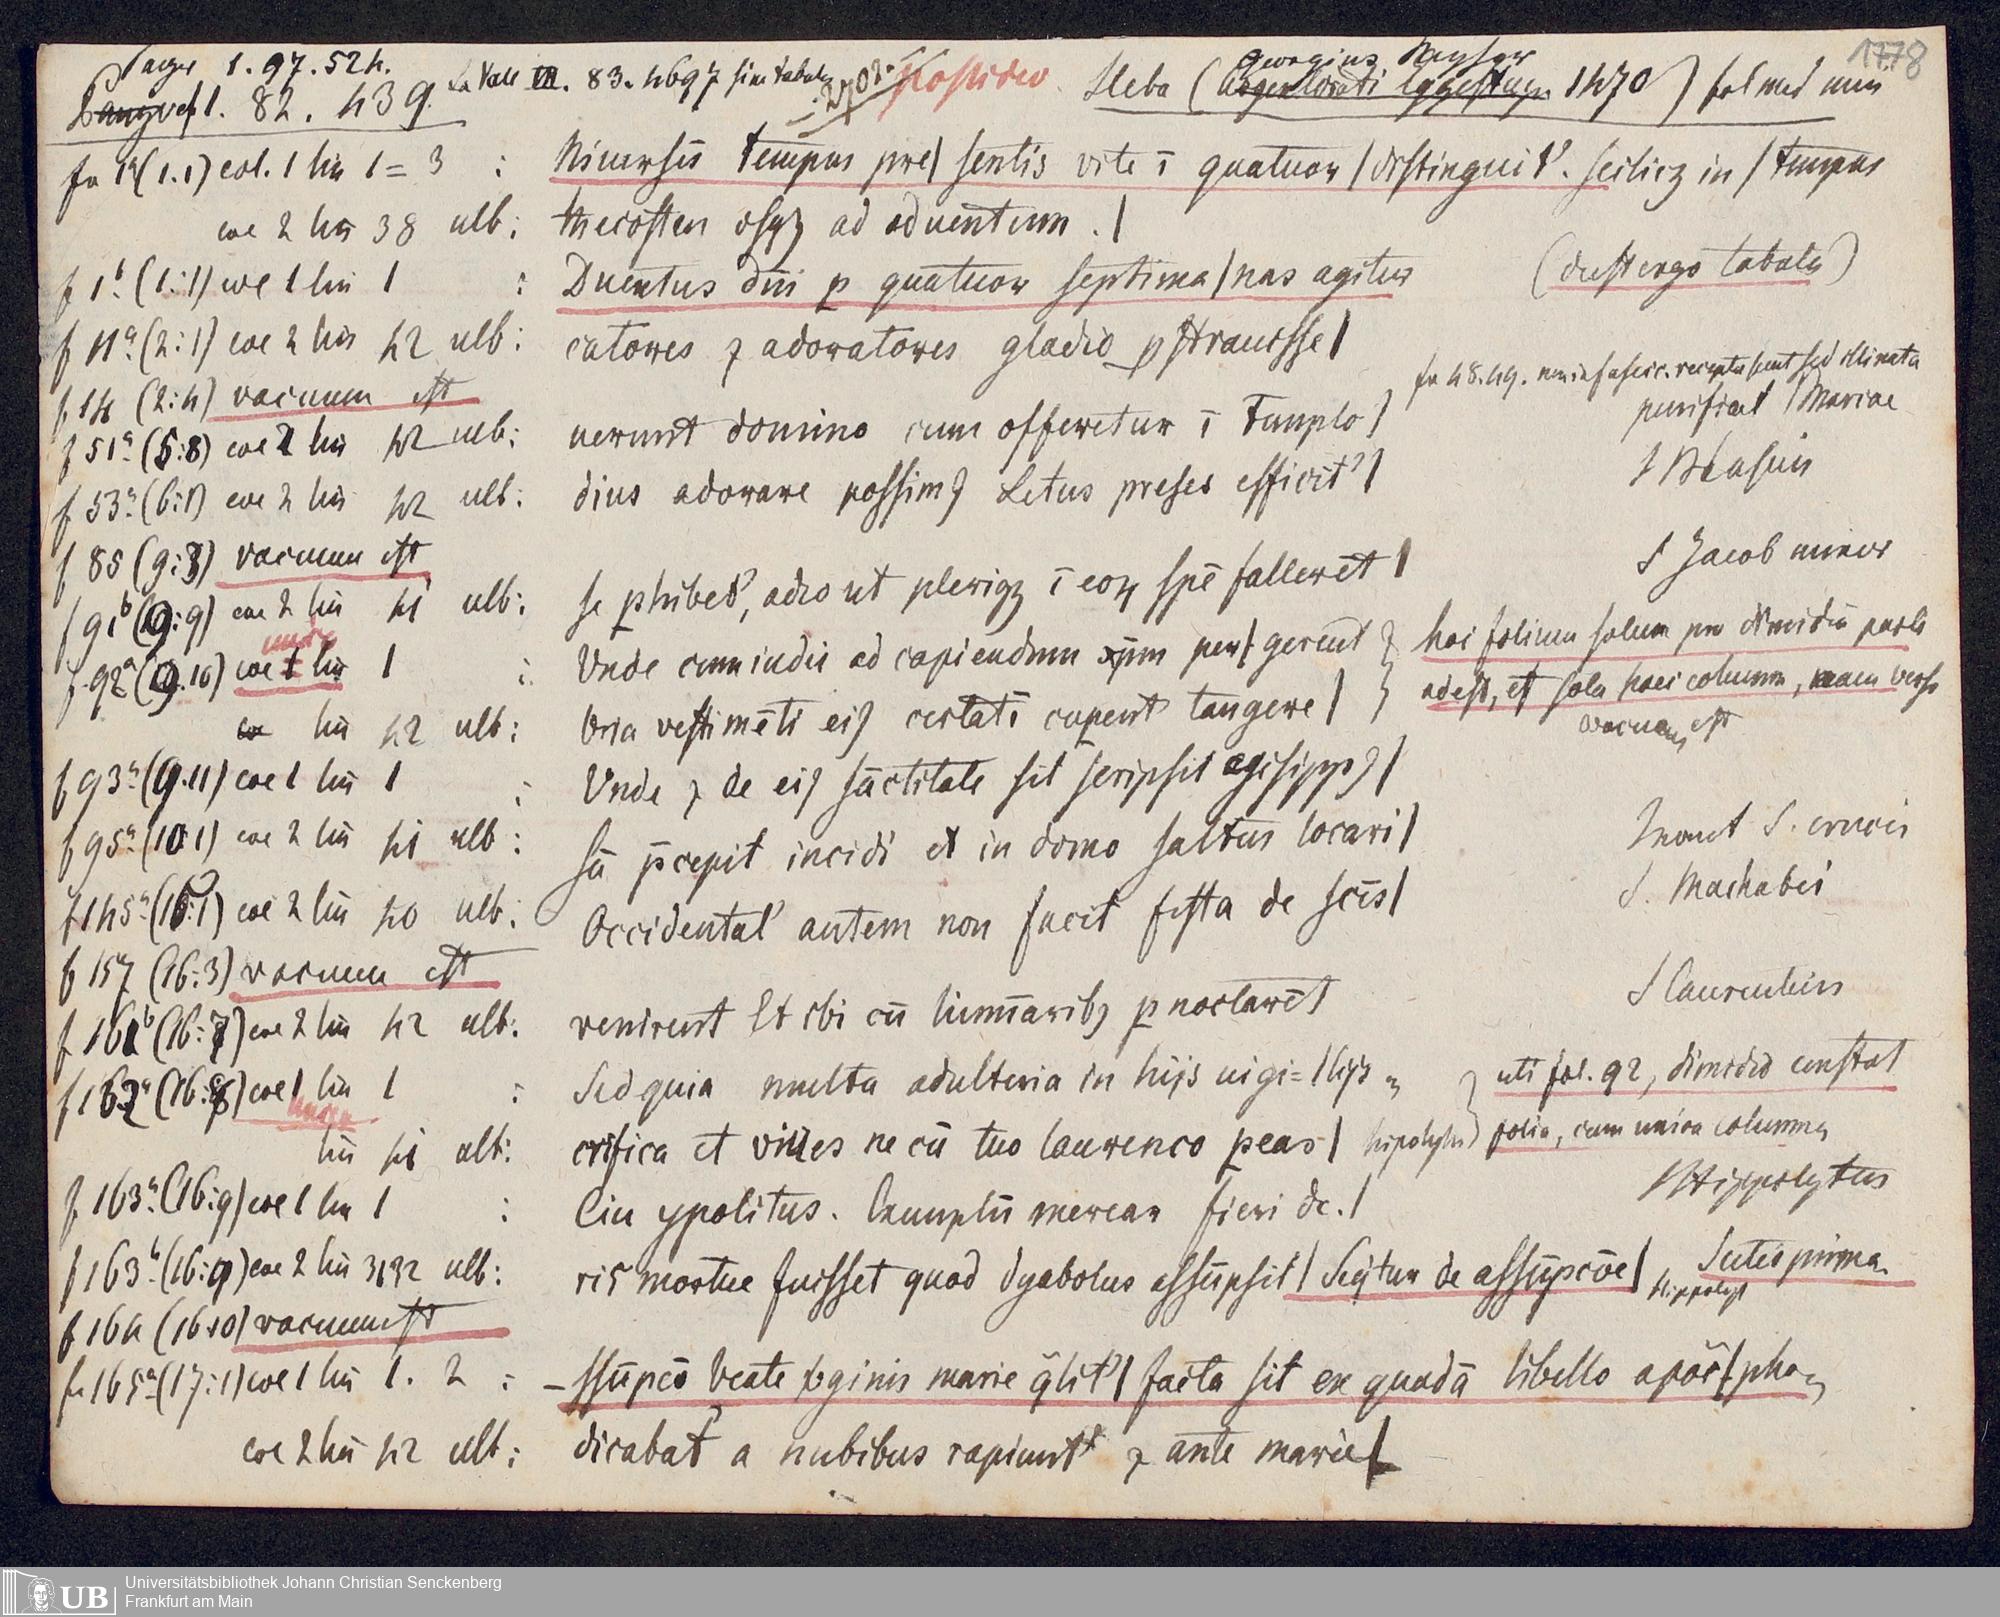 1778
Panzer 1.97.524. La Vall. 83. 4697 sine tabula 2702. Possideo. Georgius Reyser
1. 82. 439. Sleba (Argentorati Eggesteyn 1470) fol med min
fo 1a (1.1) col. 1 lin 1=3 : Niuersū tempus pre/sentis vite ī quatuor/distinguit'. scilicz in/tempus
col 2 lin 38 ulb: thecosten vsqz ad aduentum ./
f 1b. (1:1) col 1 lin 1 : Duentus dn̄i p quatuor septima/nas agitur (dest ergo tabula)
f 11a. (2:1) col 2 lin 42 ulb: catores z adoratores gladio pstrauisse/
f 14 (2:4) vacuum est fo 48.49. non in fascic. recepta sunt sed illinata
f 51a (5:8) col 2 lin 42 ulb: uerunt domino cum offeretur ī Templo/ purificat Mariae
f 53a (6:1) col 2 lin 42 ulb: dius adorare possim9 Letus preses efficit'/ S Blasius
f 85 (9:3) vacuum est
f 91b (9:9) col 2 lin 41 ulb: se phibet', adeo ut plerigz ī eoꝝ spē fallerēt/ S Jacob minor
f 92a (9.10) col 1 lin 1 : Unde cum iudei ad capiendum xp̄m per/gerent hoc folium solum pro dimidia parte
lin 42 ulb: bria vestimēti ei9 certatī cuperent tangere/ adest, et sola haec columna, nam versa
vacua est
f 93a (9.11) col 1 lin 1 : Unde z de ei9 sāctitate sit scripsit egisipp9/
f 95a (10 1) col 2 lin 41 ulb: sā p̄cepit incidi et in domo saltus locari/ Invent S. crucis
f 145a (15:1) col 2 lin 40 ulb: Occidental' autem non facit festa de scīs/ S. Machabei
f 157 (16:3) vacuum est
f 161b (16:7) col 2 lin 42 ulb: venirent Et ibi cū luminarib9 p noctarēt S Laurentius
f 162a (16:8) col 1 lin 1 : Sed quia multa adulteria in hijs uigi=/lijs z uti fol. 92, dimidio constat
lin 41 ulb: crifica et viues ne cū tuo laurenco peas/ hipolytus folio, cum unica columna
f 163a (16:9) col 1 lin 1 : Ciu ypolitus. Exemplū merear fieri dc./ S Hippolytus
f 163b (16:9) col 2 lin 3132 ulb: ris mortue fuisset quod dyabolus assūpsit/ Seq̄tur de assūpcōe/ Hippolyt
f 164 (16 10) vacuum est
fo 165a (17:1) col 1 lin 1. 2 : –ssūpcō beate v̄ginis marie q̄lit'/ facta sit ex quadā libello apoc̄/pho
col 2 lin 42 ulb: dicabat a nubibus rapiunt' z ante marie/
Universitätsbibliothek Johann Christian Senckenberg
Frankfurt am Main
UB